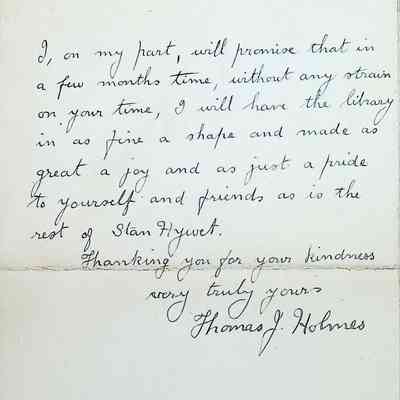 I, on my part, will promise that in
a few months time, without any strain
on your time, I will have the library
in as fine a shape and made as
great a joy and as just a pride
to yourself and friends as is the
rest of Stan Hywet.
Thanking you for your kindness
very truly yours
Thomas J. Holmes